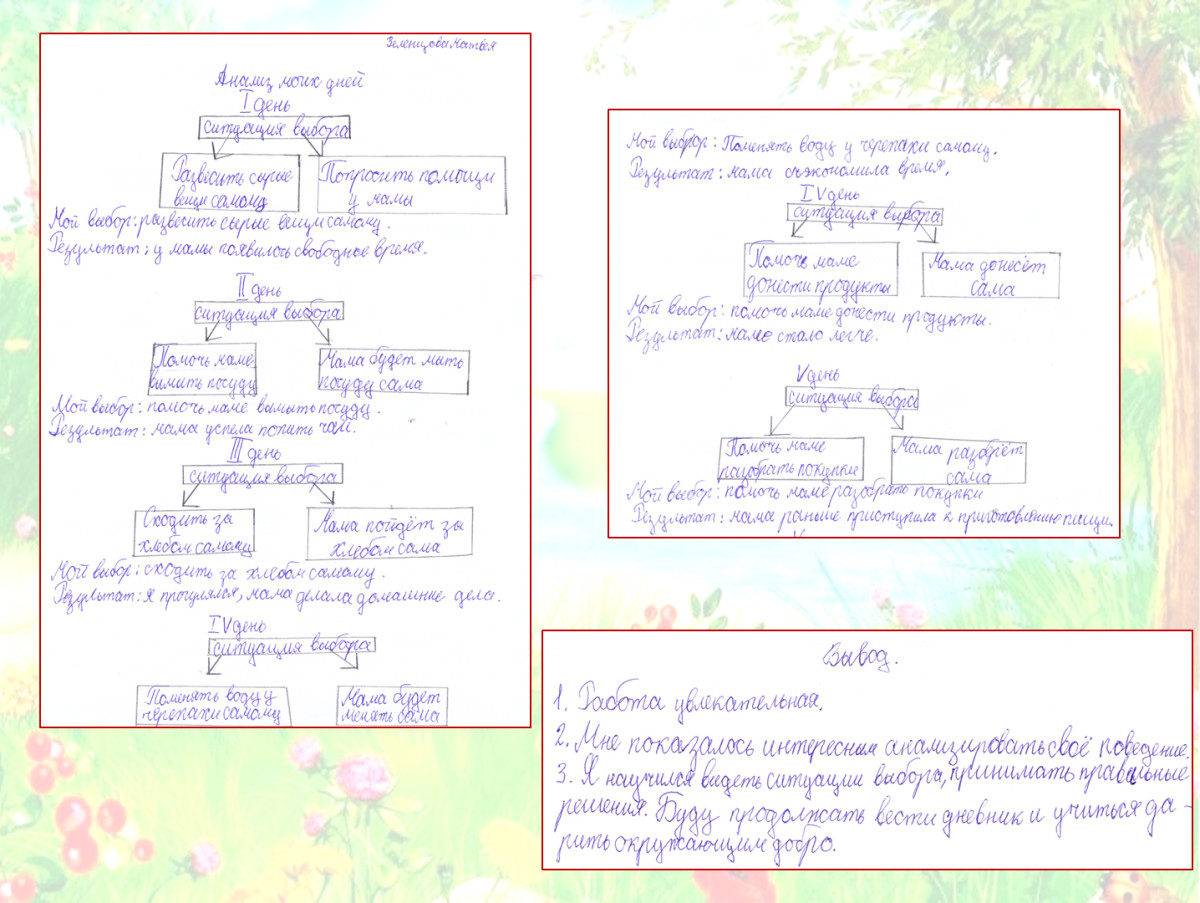 Зеленцова Матвея
Анализ моих дней
I день
ситуация выбора
Развесить сырые
вещи самому
Попросить помощи
у мамы
Мой выбор: развесить сырые вещи самому.
Результат: у мамы появилось свободное время.
II день
ситуация выбора
Помочь маме
вымыть посуду
Мама будет мыть
посуду сама
Мой выбор: помочь маме вымыть посуду.
Результат: мама успела попить чай.
III день
ситуация выбора
Сходить за
хлебом самому
Мама пойдёт за
хлебом сама
Мой выбор: сходить за хлебом самому.
Результат: я прогулялся, мама делала домашние дела.
IV день
ситуация выбора
Поменять воду у
черепахи самому
Мама будет
менять сама
Мой выбор: Поменять воду у черепахи самому.
Результат: мама съэкономила время.
IV день
ситуация выбора
Помочь маме
донести продукты
Мама донесёт
сама
Мой выбор: помочь маме донести продукты.
Результат: маме стало легче.
V день
ситуация выбора
Помочь маме
разобрать покупки
Мама разберёт
сама
Мой выбор: помочь маме разобрать покупки
Результат: мама раньше приступила к приготовлению пищи.
Вывод.
1. Работа увлекательная.
2. Мне показалось интересным анализировать своё поведение.
3. Я научился видеть ситуации выбора, принимать правильные
решения. Буду продолжать вести дневник и учиться да-
рить окружающим добро.